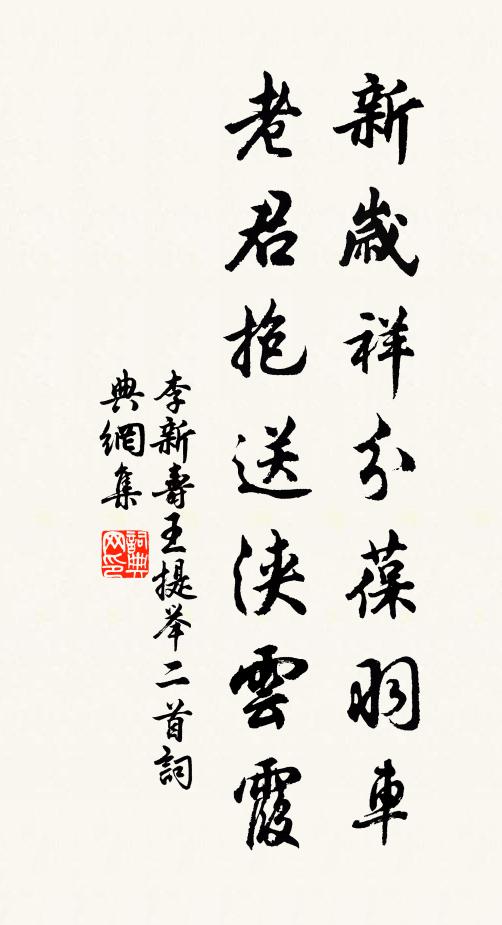 新歲祥分葆羽車
老君抱送浹雲霞
李新壽王提举二首詞
典網集
詞典
网印